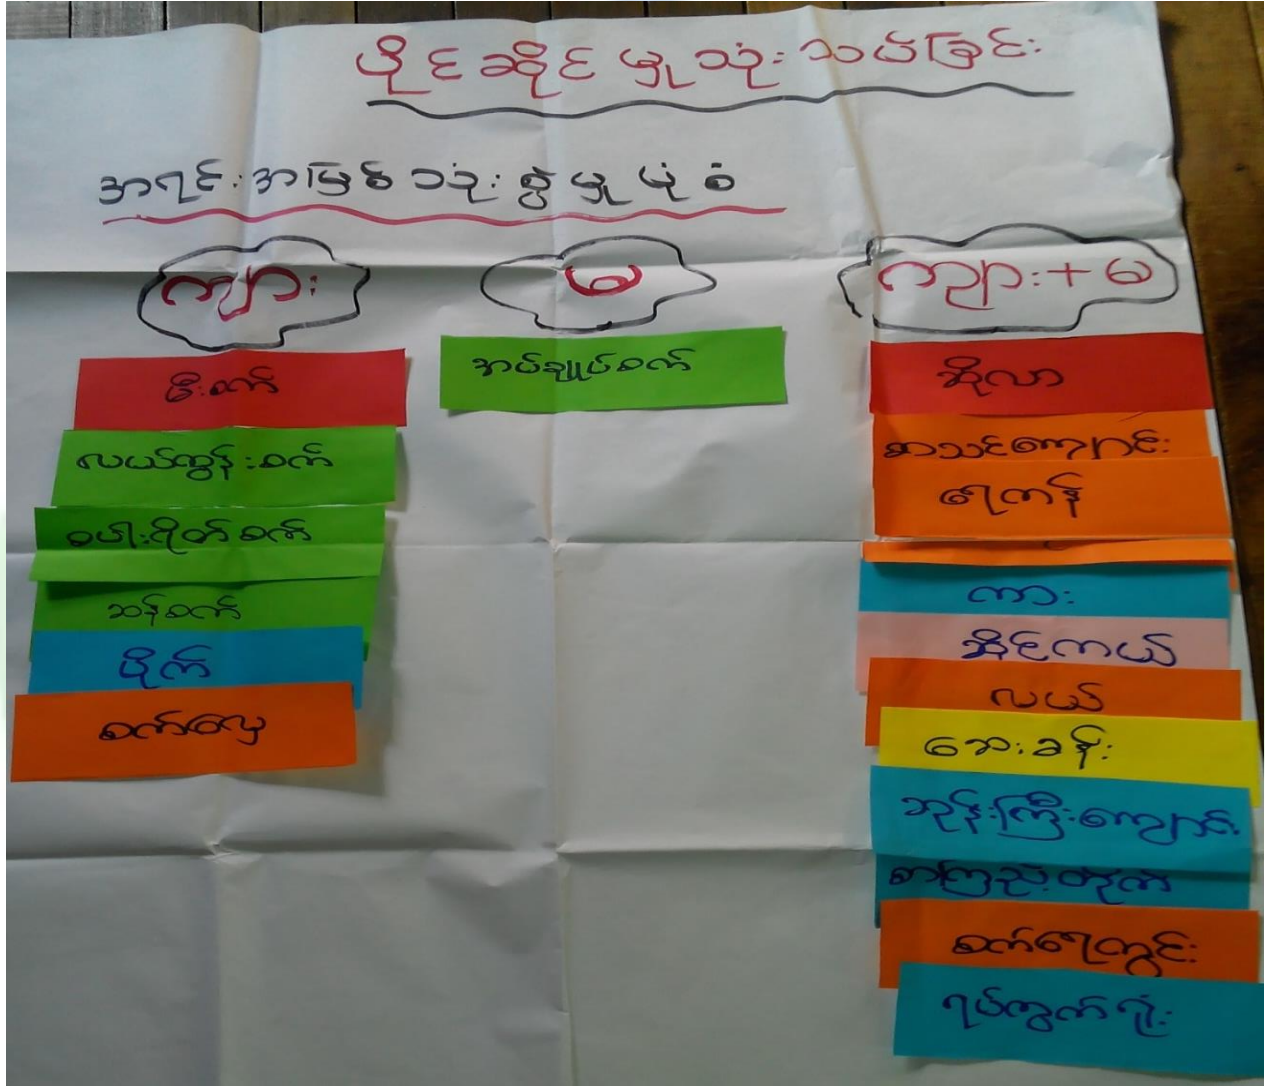 ပိုင်ဆိုင်မှုသုံးသပ်ခြင်း
အရင်းအမြစ်သုံးစွဲမှုပုံစံ
ကျား
မီးစက်
လယ်ထွန်စက်
စပါးရိတ်စက်
ဆန်စက်
ပိုက်
စက်လှေ
မ
အပ်ချုပ်စက်
ကျား+မ
ဆိုလာ
စာသင်ကျောင်း
ရေကန်
ကား
ဆိုင်ကယ်
လယ်
ဆေးခန်း
ဘုန်းကြီးကျောင်း
စာကြည့်တိုက်
စက်ရေတွင်း
ရပ်ကွက်ရုံး